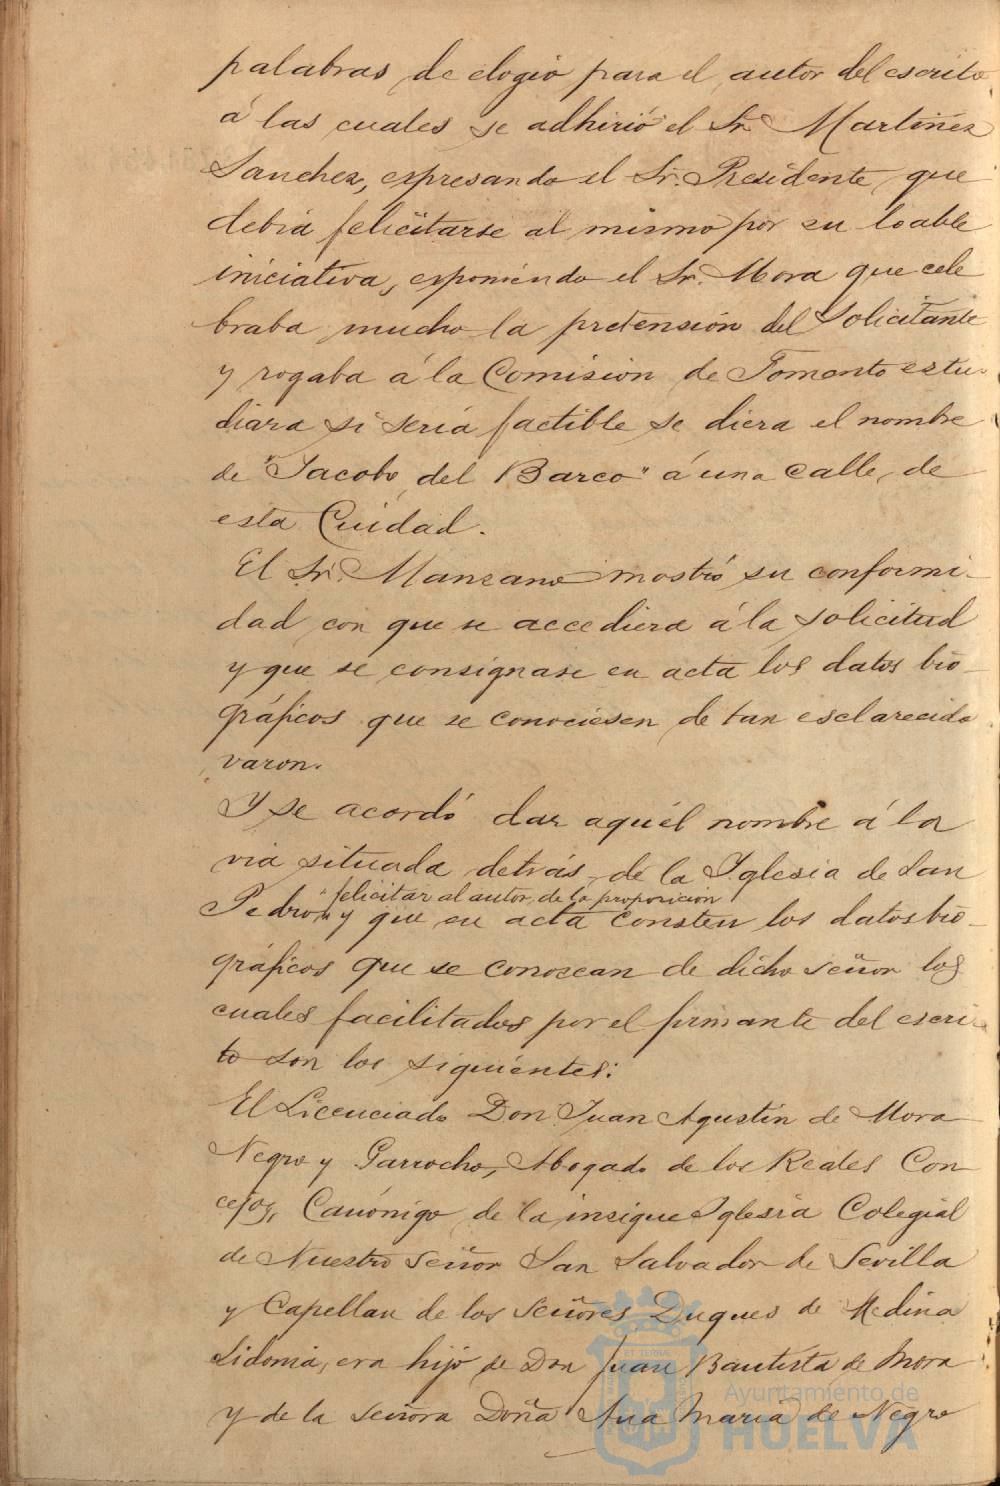 palabras de elogio para el autor del escrito
á las cuales se adhirió el Sr. Martinez
Sanchez, expresando el Sr. Presidente que
debia felicitarse al mismo por su loable
iniciativa, exponiendo el Sr. Mora que cele
braba mucho la pretensión del Solicitante
y rogaba á la Comision de Fomento estu-
diara si seria factible se diera el nombre
de "Jacobo del Barco" á una calle de
esta Cuidad.
El Sr. Manzano mostró su conformi-
dad con que se accediera á la solicitud
y que se consignase en acta los datos bio-
gráficos que se conociesen de tan esclarecido
varon.
Y se acordó dar aquél nombre á la
via situada detrás de la Iglesia de San
felicitar al autor de la proposicion
Pedro, y que en acta consten los datos bio-
gráficos que se conozcan de dicho señor los
cuales facilitados por el firmante del escri-
to son los siguientes:
El Licenciado Don Juan Agustin de Mora
Negro y Garrocho, Abogado de los Reales Con
cejos, Canónigo de la insigne Iglesia Colegial
de Nuestro Señor San Salvador de Sevilla
y Capellan de los Señores Duques de Medina
Sidonia, era hijo de Don Juan Bautista de Mora
y de la Señora Doña Ana Maria de Negro
Ayuntamiento de
HUELVA